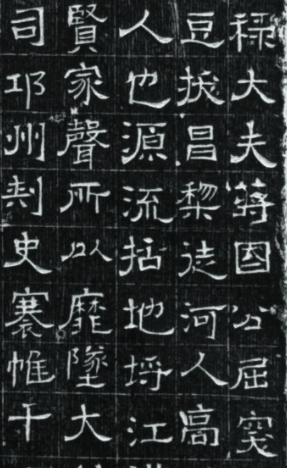 祿大夫蔣國公屈突
豆拔昌黎徒河人高
人也源流括地埒江
賢家聲所以靡墜大
司邛州刺史褰帷千